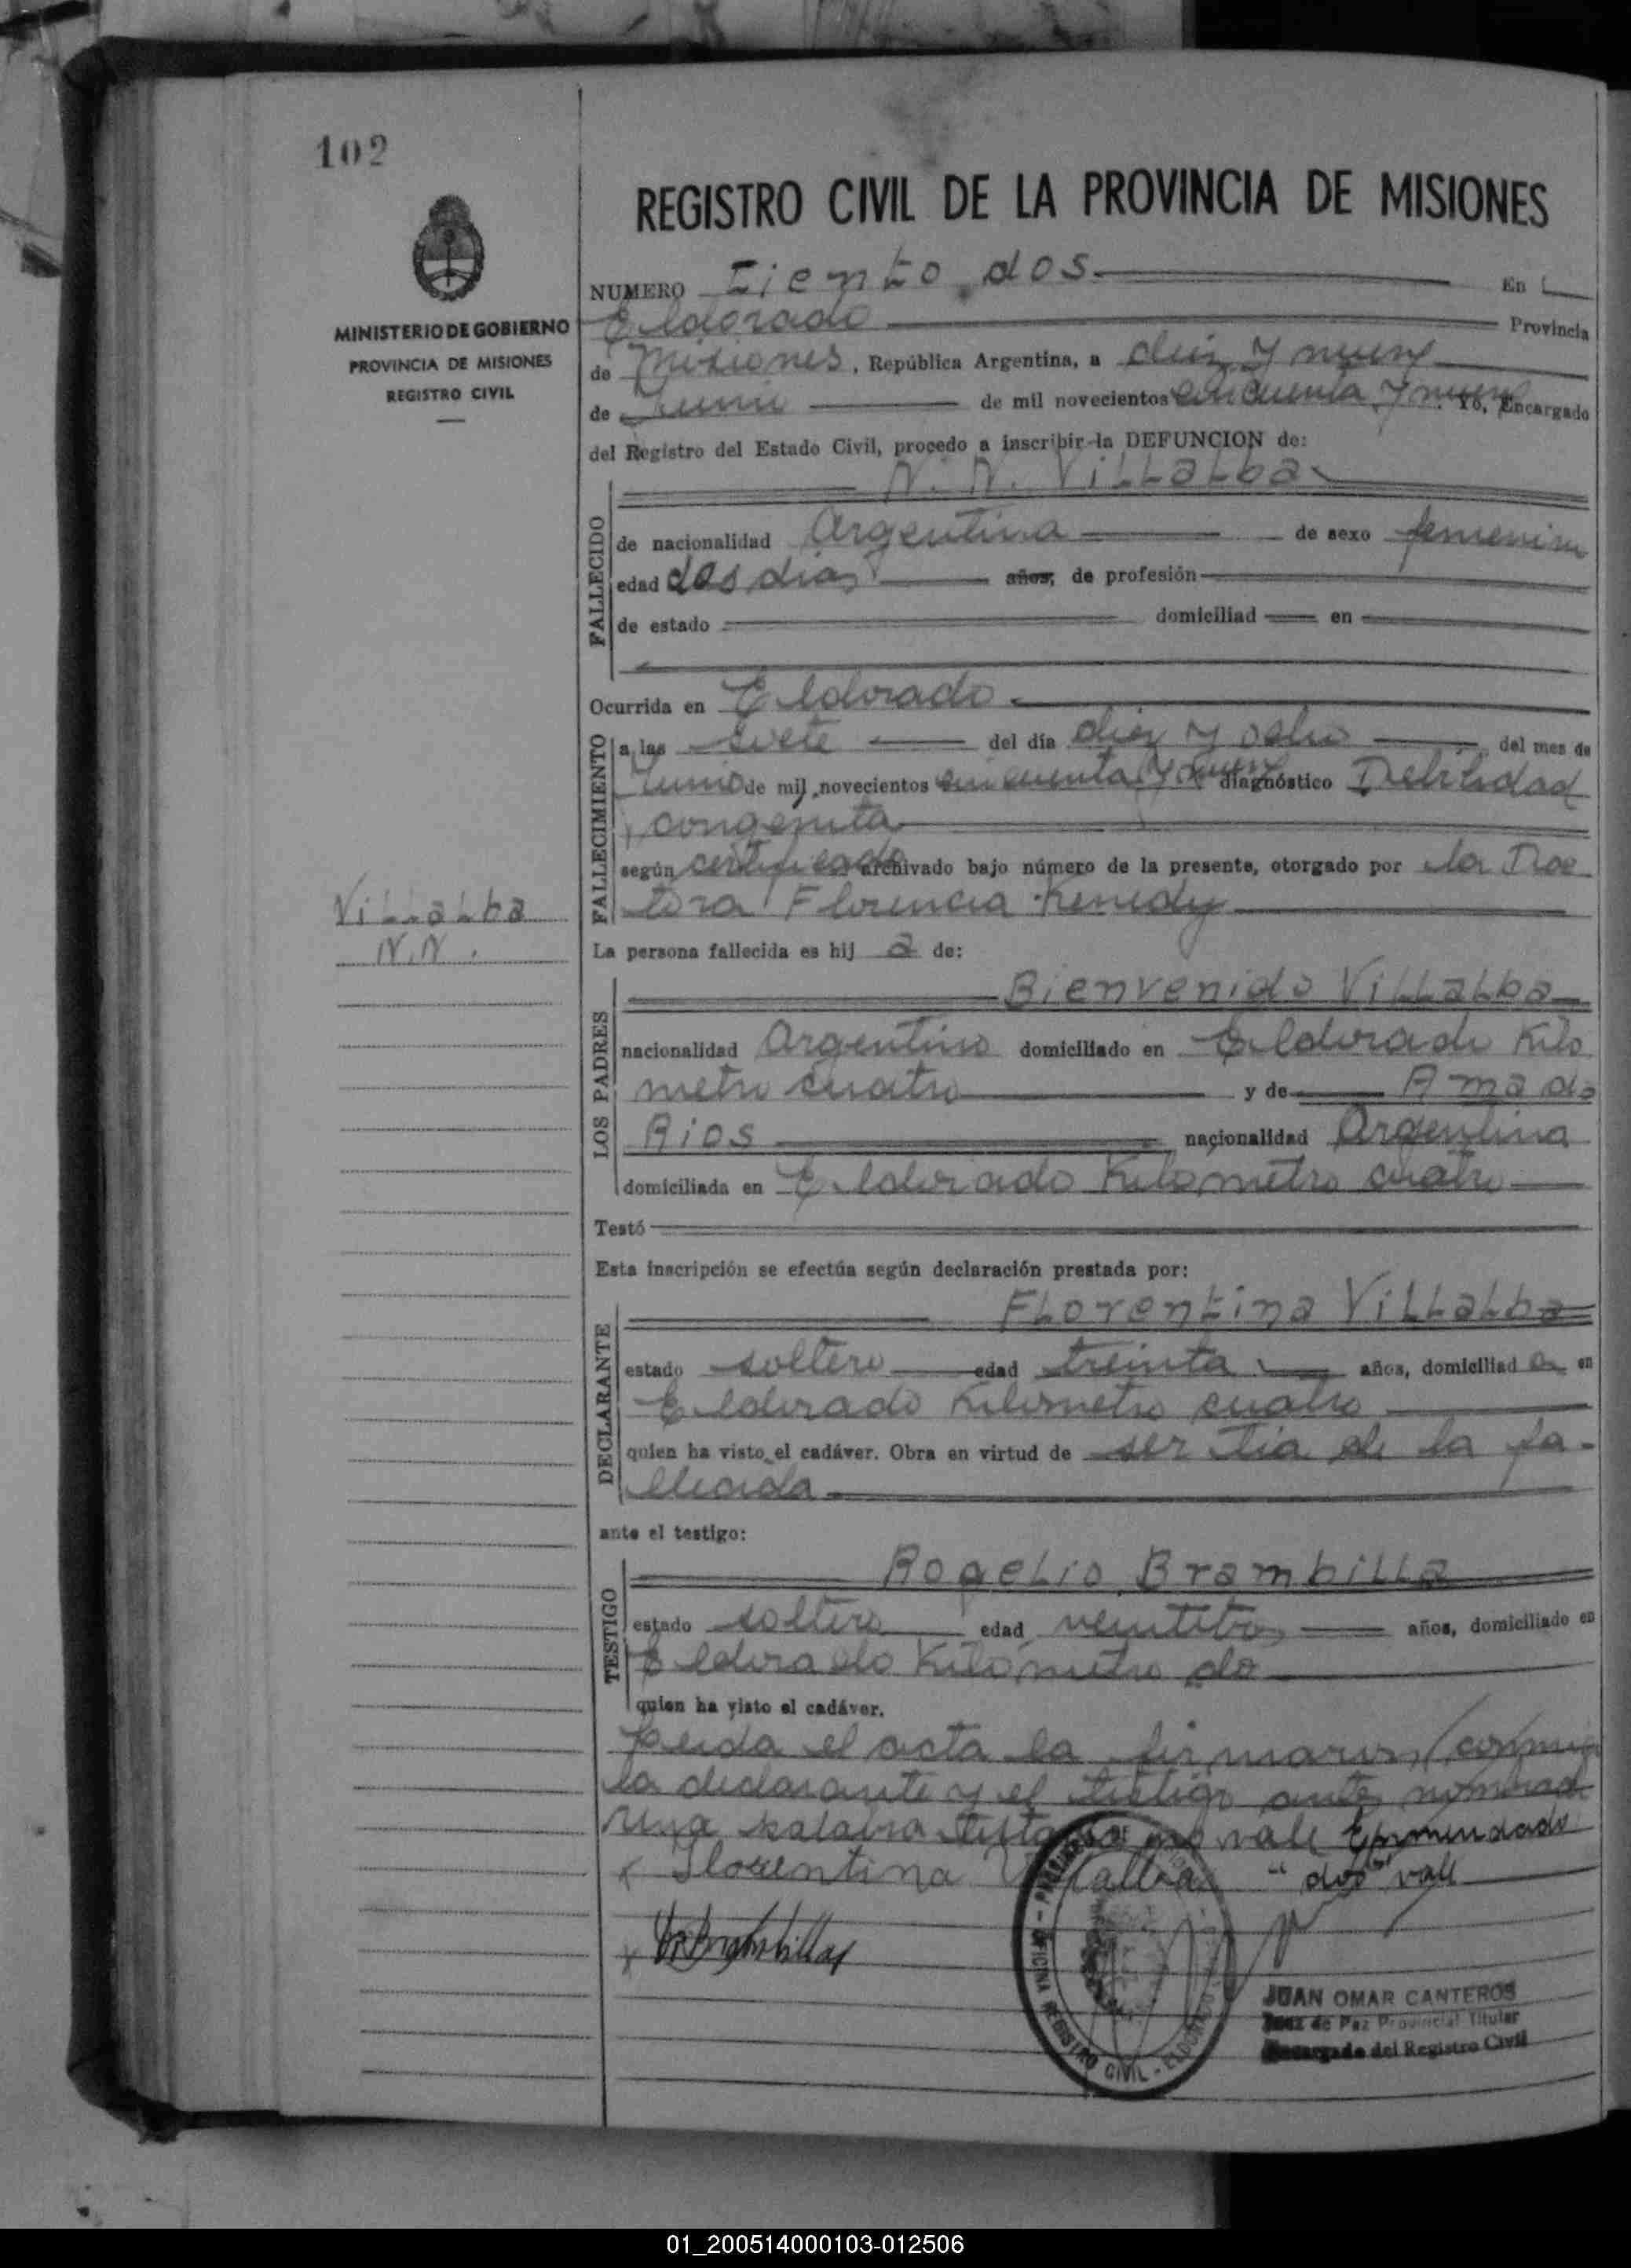 102
REGISTRO CIVIL DE LA PROVINCIA DE MISIONES
NUMERO Ciento dos En
Eldorado Provincia
MINISTERIO DE GOBIERNO
PROVINCIA DE MISIONES
REGISTRO CIVIL
de Misiones, República Argentina, a diez y nueve
de Junio de mil novecientos cincuenta y nueve. Yo, Encargado
del Registro del Estado Civil, procedo a inscribir la DEFUNCION de:
N. N. Villalba
FALLECIDO
de nacionalidad Argentina de sexo femenino
edad dos días años, de profesión
de estado domiciliad en
Ocurrida en Eldorado
FALLECIMIENTO
a las siete del día diez y ocho del mes de
Junio de mil novecientos cincuenta y nueve diagnóstico Debilidad
congenita
según certificado archivado bajo número de la presente, otorgado por la Doc
tora Florencia Kenedy
Villalba
N.N.
La persona fallecida es hij a de:
LOS PADRES
Bienvenido Villalba
nacionalidad Argentino domiciliado en Eldorado Kilo
metro cuatro y de Amada
Rios nacionalidad Argentina
domiciliada en Eldorado Kilometro cuatro
Testó
Esta inscripción se efectúa según declaración prestada por:
DECLARANTE
Florentina Villalba
estado soltera edad treinta años, domiciliad a en
Eldorado Kilometro cuatro
quien ha visto el cadáver. Obra en virtud de ser tia de la fa-
llecida
ante el testigo:
TESTIGO
Rogelio Brambilla
estado soltero edad años, domiciliado en
Eldorado Kilómetro dos
quien ha visto el cadáver.
Leida el acta la firmaron conmigo
la declarante y el testigo antes nombrado
Una palabra testada no vale Enmendado
Florentina Villalba "dos" vale
OFICINA REGISTRO CIVIL - ELDORADO
JUAN OMAR CANTEROS
Juez de Paz Provincial Titular
Encargado del Registro Civil
01_200514000103-012506